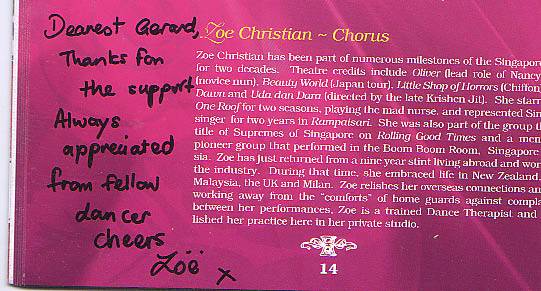 Dearest Gerard,
Thanks for
the support
Always
appreciated
from fellow
dancer
cheers
Zoë x
Zoe Christian ~ Chorus
Zoe Christian has been part of numerous milestones of the Singapore
for two decades. Theatre credits include Oliver (lead role of Nancy
(novice nun), Beauty World (Japan tour), Little Shop of Horrors (Chiffon)
Dawn and Uda dan Dara (directed by the late Krishen Jit). She starr
One Roof for two seasons, playing the mad nurse, and represented Sin
singer for two years in Rampaisari. She was also part of the group th
title of Supremes of Singapore on Rolling Good Times and a mem
pioneer group that performed in the Boom Boom Room, Singapore
sia. Zoe has just returned from a nine year stint living abroad and wor
the industry. During that time, she embraced life in New Zealand,
Malaysia, the UK and Milan. Zoe relishes her overseas connections an
working away from the "comforts" of home guards against compla
between her performances, Zoe is a trained Dance Therapist and
lished her practice here in her private studio.
14